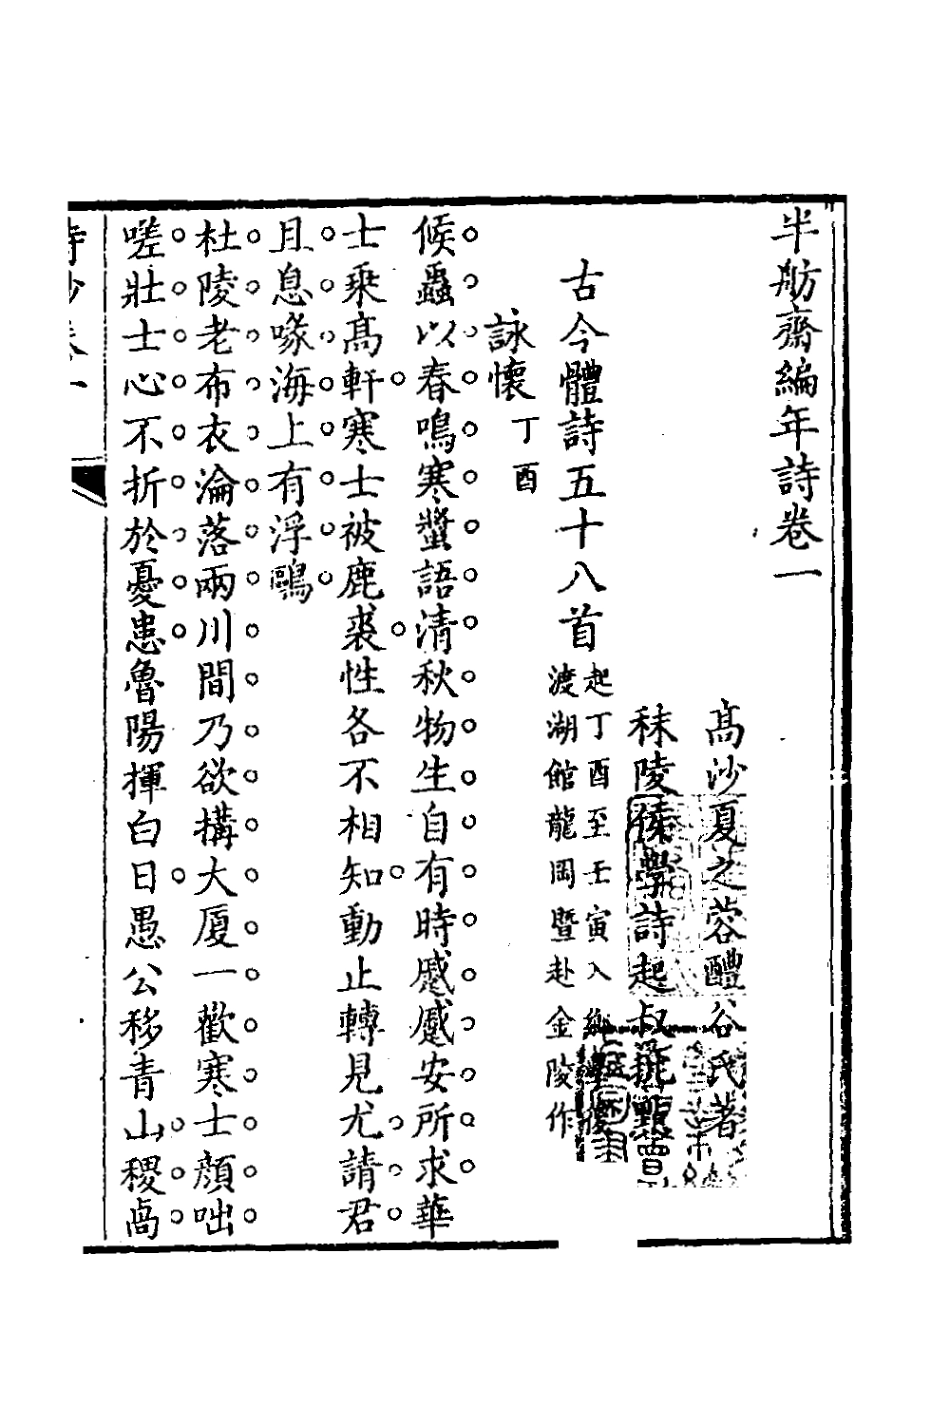 半舫齋編年詩卷一
高沙夏之蓉醴谷氏著
秣陵侯學詩起叔批點
古今體詩五十八首
起丁酉至壬寅入鄉
渡湖館龍岡暨赴金陵作
詠懷 丁酉
候蟲以春鳴寒螿語清秋物生自有時慼慼安所求華
士乘高軒寒士被鹿裘性各不相知動止轉見尤請君
且息喙海上有浮鷗
杜陵老布衣淪落兩川間乃欲構大厦一歡寒士顏咄
嗟壯士心不折於憂患魯陽揮白日愚公移青山稷卨